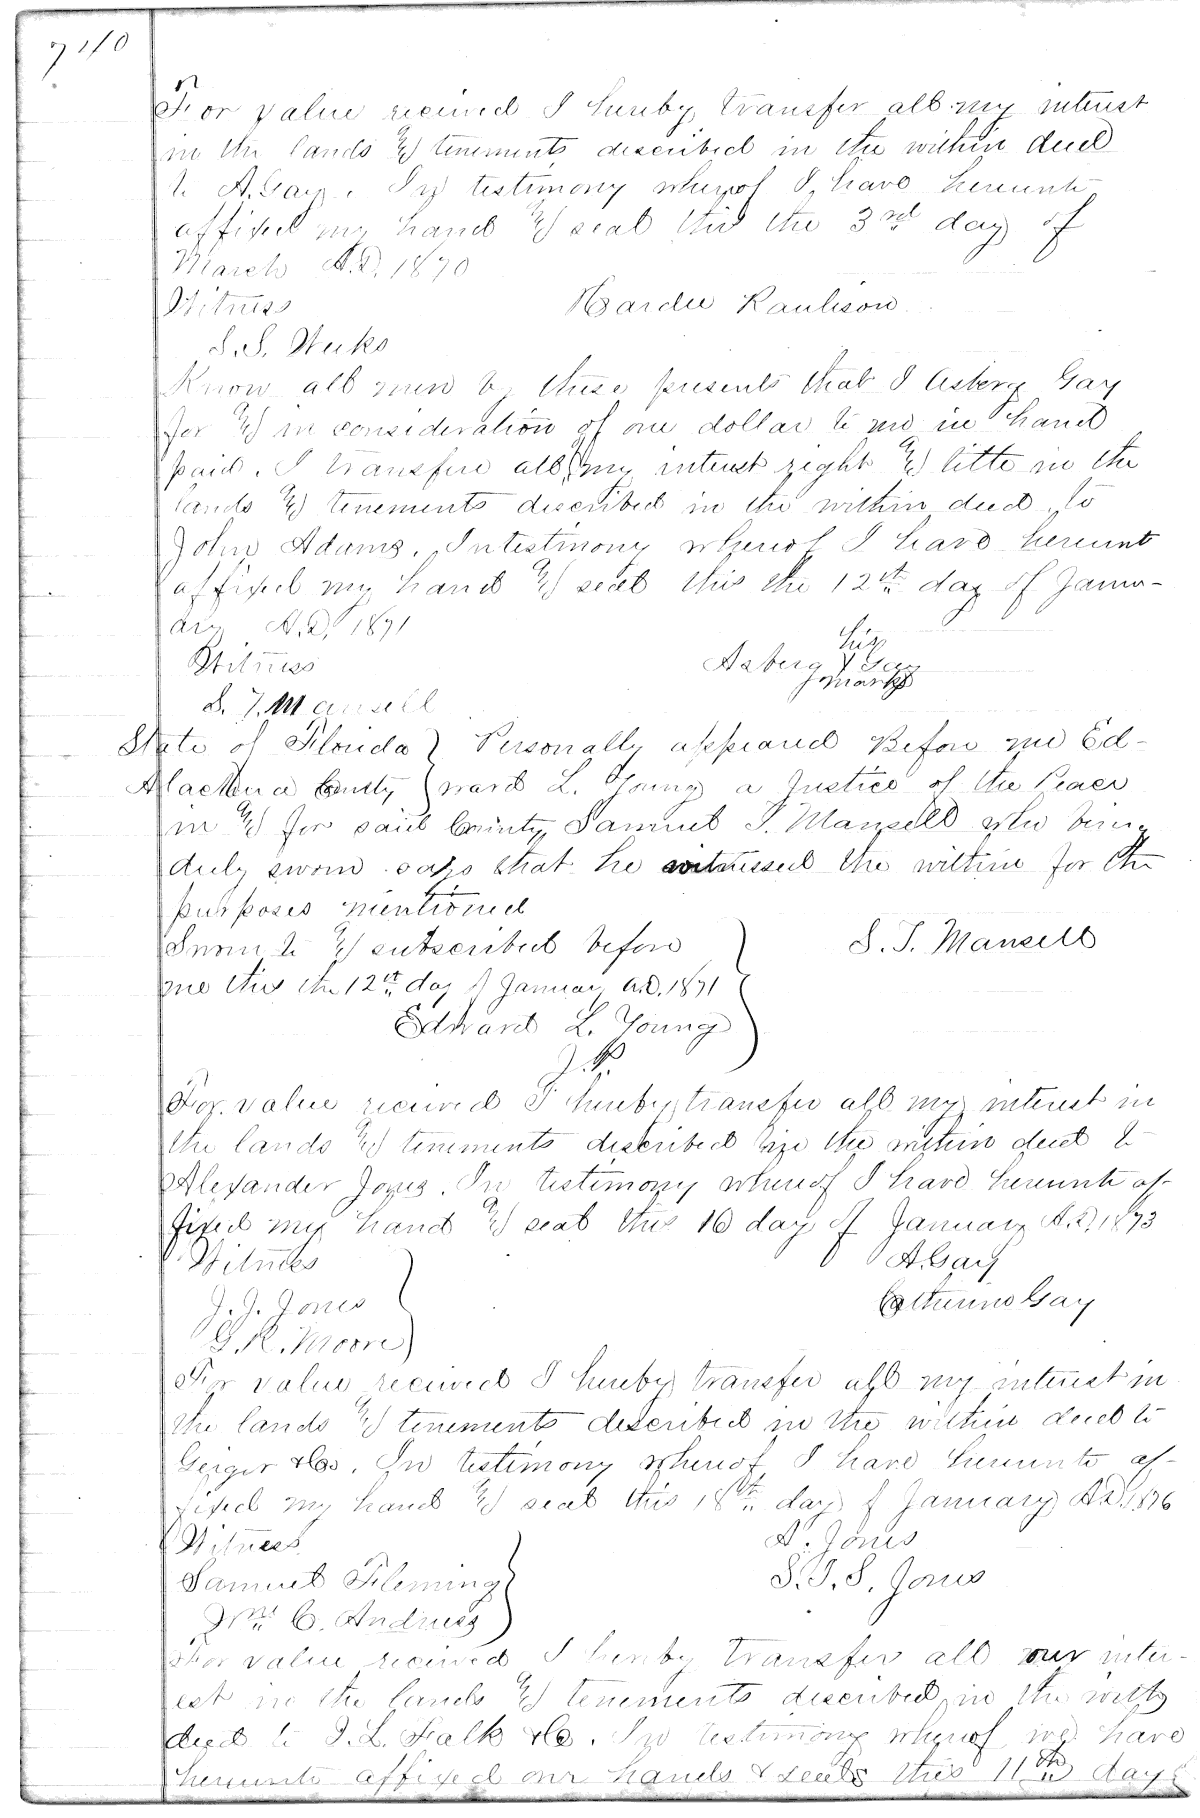 710
For value recieved I hereby transfer all my interest
in the lands & tenements described in the within deed
to A. Gay. In testimony whereof I have hereunto
affixed my hand & seal this the 3rd day of
March A.D. 1870
Witness Hardee Raulison
S. S. Weeks
Know all men by these presents that I Asberg Gay
for & in consideration of one dollar to me in hand
paid. I transfere all my interest right & title in the
lands & tenements described in the within deed to
John Adams. In testimony whereof I have hereunt
affixed my hand & seal this the 12th day of Janu-
ary A.D. 1871
his
Witness Asberg X Gay
mark
S. T. Mansell
State of Florida } Personally appeared Before me Ed-
Alachua County } ward L. Young a Justice of the Peace
in & for said County Samuel T. Mansell who being
duly sworn says that he witnessed the within for the
purposes mentioned
Sworn to & subscribed before } S. T. Mansell
me this the 12th day of January A.D. 1871
Edward L. Young
J.P.
For value recieved I hereby transfer all my interest in
the lands & tenements described in the within deed to
Alexander Jones. In testimony whereof I have hereunto af-
fixed my hand & seal this 16 day of January A.D. 1873
Witness A. Gay
J. J. Jones Catherine Gay
G. R. Moore
For value recieved I hereby transfer all my interest in
the lands & tenements described in the within deed to
Geiger & Co. In testimony whereof I have hereunto af-
fixed my hand & seal this 18th day of January A.D. 1876
Witness A. Jones
Samuel Fleming S. T. S. Jones
Wm. C. Andress
For value recieved I hereby transfer all our inter-
est in the lands & tenements described in the within
deed to I. L. Falk & Co. In testimony whereof we have
hereunto affixed our hands & seals this 11th day